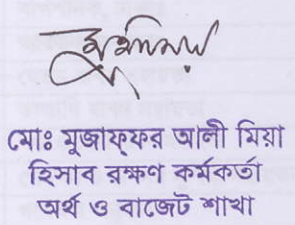 মোঃ মুজাফ্ফর আলী মিয়া
হিসাব রক্ষণ কর্মকর্তা
অর্থ ও বাজেট শাখা